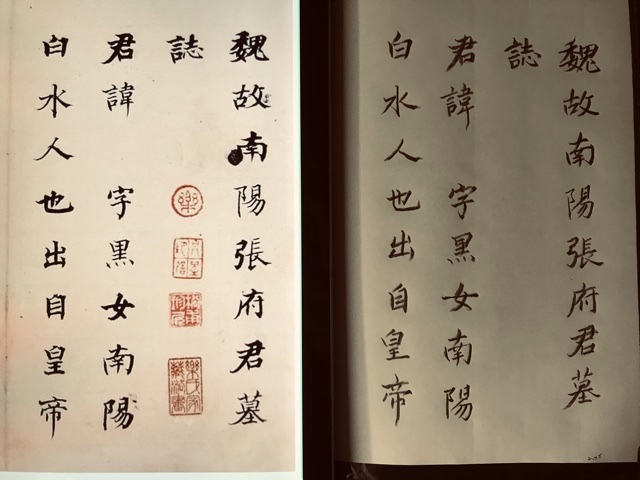 魏故南陽張府君墓
誌
君諱 字黑女南陽
白水人也出自皇帝
魏故南陽張府君墓
誌
君諱 字黑女南陽
白水人也出自皇帝